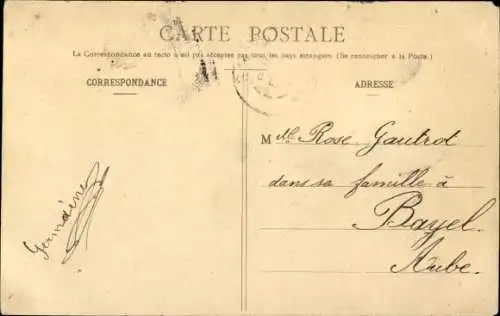 CARTE POSTALE
La Correspondance au recto n'est pas acceptée par tous les pays étrangers (Se renseigner à la Poste.)
CORRESPONDANCE
ADRESSE
Germaine
Mlle Rose Gautrot
dans sa famille à
Bayel.
Aube.